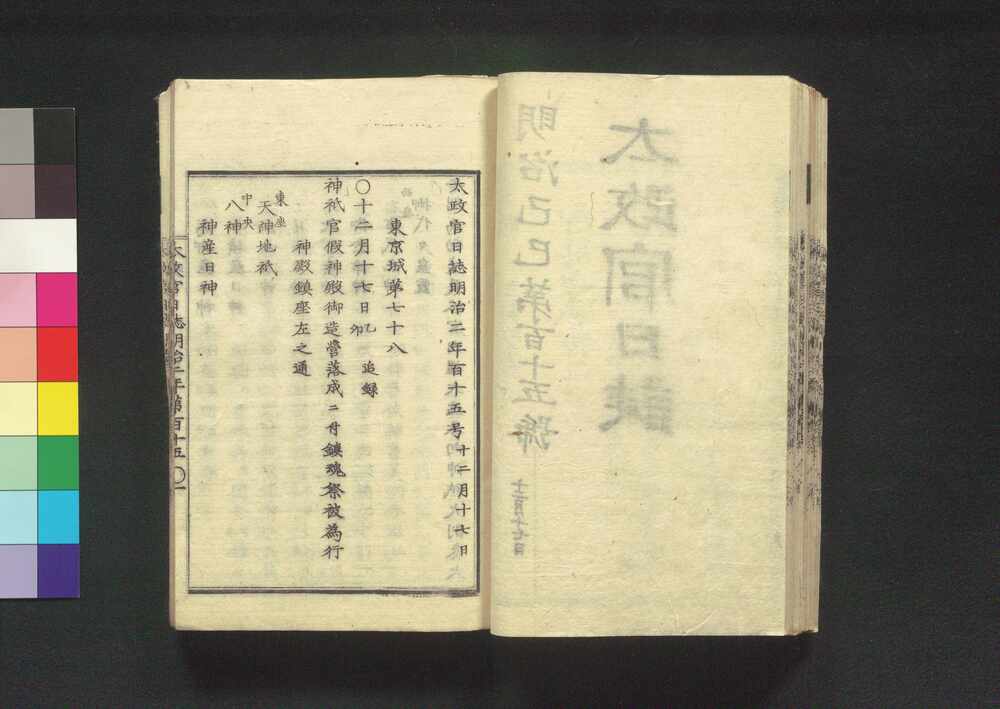 太政官日誌
明治己巳第百十五號
十二月十七日
太政官日誌明治二年百十五号 十二月十七日
東京城第七十八
〇十二月十七日 乙卯 追録
神祇官假神殿御造營落成ニ付鎮魂祭被為行
神殿鎮座左之通
東座
天神地祇
中央
八神
神産日神
太政官日誌明治二年第百十五 〇一